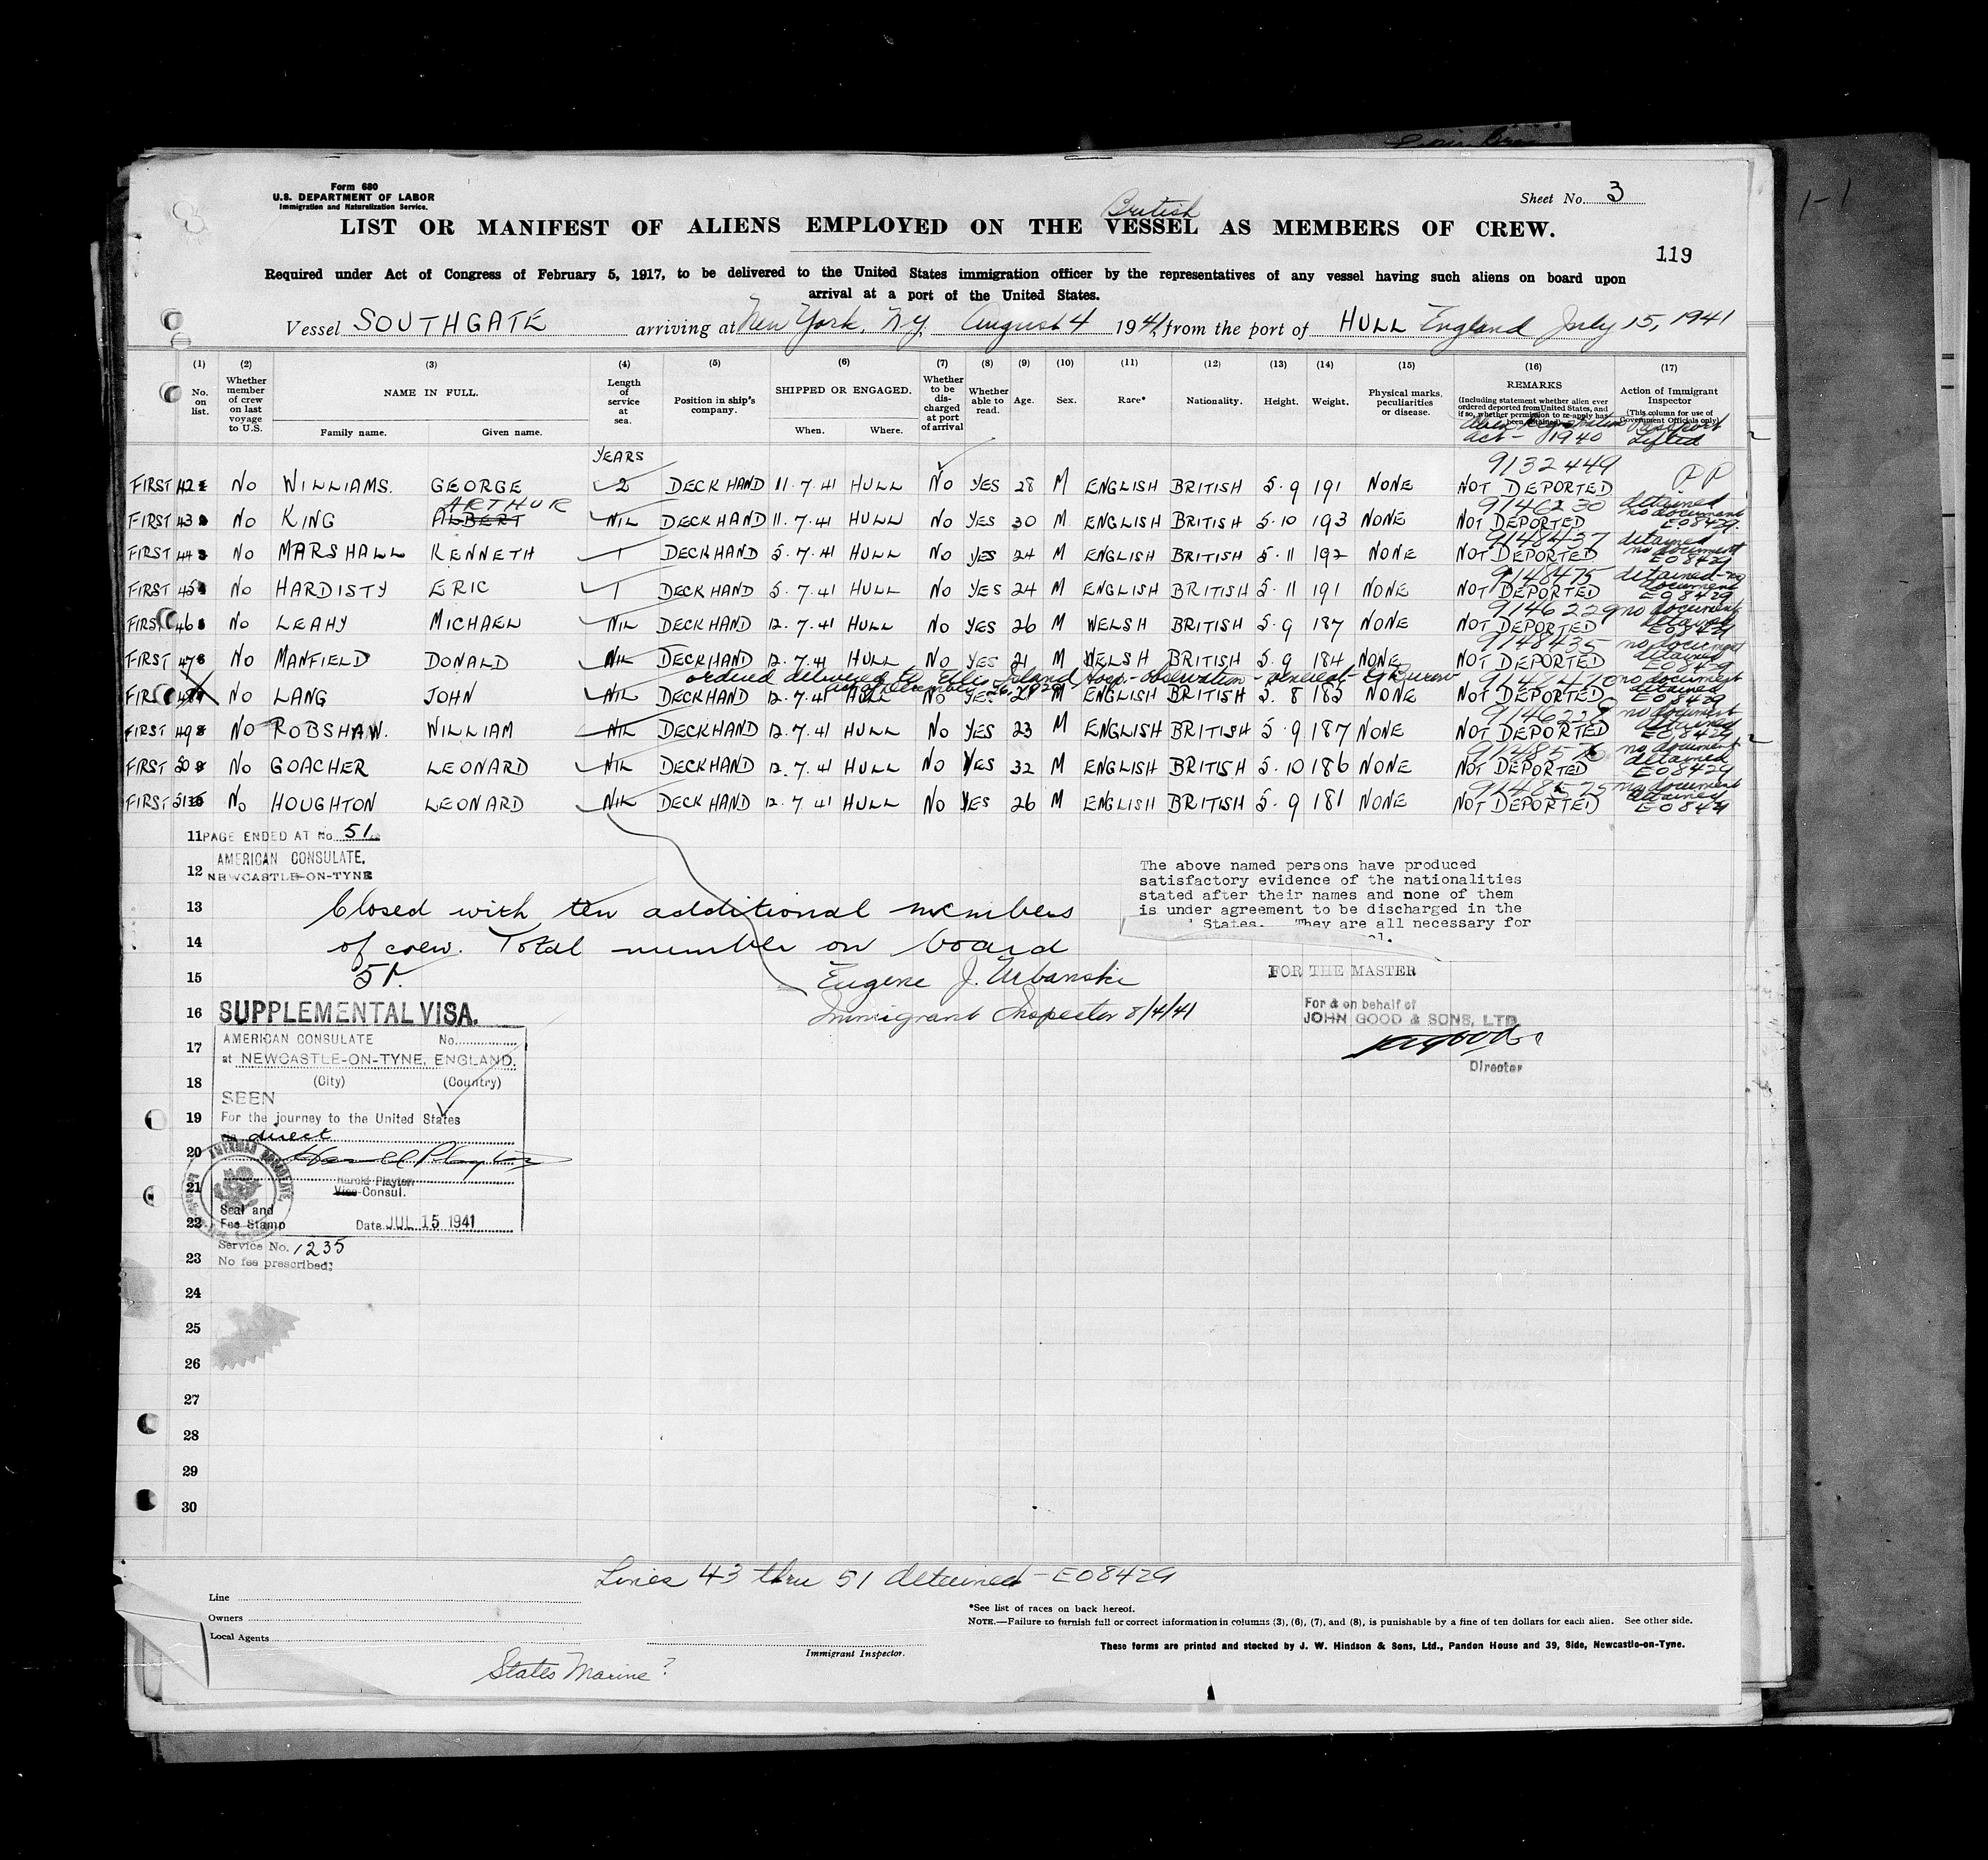 Form 680
U.S. DEPARTMENT OF LABOR
Immigration and Naturalization Service.
Sheet No. 3
British
LIST OR MANIFEST OF ALIENS EMPLOYED ON THE VESSEL AS MEMBERS OF CREW.
119
Required under Act of Congress of February 5, 1917, to be delivered to the United States immigration officer by the representatives of any vessel having such aliens on board upon
arrival at a port of the United States.
Vessel SOUTHGATE arriving at New York, N.Y. August 4 1941, from the port of HULL England July 15, 1941
(1) (2) (3) (4) (5) (6) (7) (8) (9) (10) (11) (12) (13) (14) (15) (16) (17)
No. on list.
Whether member of crew on last voyage to U.S.
NAME IN FULL.
Family name. Given name.
Length of service at sea.
Position in ship's company.
SHIPPED OR ENGAGED.
When. Where.
Whether to be discharged at port of arrival
Whether able to read.
Age.
Sex.
Race*
Nationality.
Height.
Weight.
Physical marks, peculiarities or disease.
REMARKS
(Including statement whether alien ever ordered deported from United States, and if so, whether permission to re-apply has been obtained)
Alien Registration Act - 1940
Action of Immigrant Inspector
(This column for use of Government Officials only)
Passport Lifted
YEARS
9132449
FIRST 42 NO WILLIAMS. GEORGE 2 DECKHAND 11.7.41 HULL NO YES 28 M ENGLISH BRITISH 5.9 191 NONE NOT DEPORTED PP
ARTHUR 9146230 detained no document
FIRST 43 NO KING ALBERT NIL DECKHAND 11.7.41 HULL NO YES 30 M ENGLISH BRITISH 5.10 193 NONE NOT DEPORTED E08429.
9148437 detained no document
FIRST 44 NO MARSHALL KENNETH 1 DECKHAND 5.7.41 HULL NO YES 24 M ENGLISH BRITISH 5.11 192 NONE NOT DEPORTED E08429
9148475 detained - no document
FIRST 45 NO HARDISTY ERIC 1 DECKHAND 5.7.41 HULL NO YES 24 M ENGLISH BRITISH 5.11 191 NONE NOT DEPORTED E08429
9146229 no document detained
FIRST 46 NO LEAHY MICHAEL NIL DECKHAND 12.7.41 HULL NO YES 26 M WELSH BRITISH 5.9 187 NONE NOT DEPORTED E08429
9148435 no document detained
FIRST 47 NO MANFIELD DONALD NIL DECKHAND 12.7.41 HULL NO YES 21 M WELSH BRITISH 5.9 184 NONE NOT DEPORTED E08429
ordered delivered to Ellis Island Hosp. - observation - no document detained
FIRST 48 NO LANG JOHN NIL DECKHAND 12.7.41 HULL NO YES M ENGLISH BRITISH 5.8 183 NONE NOT DEPORTED E08429
no document detained
FIRST 49 NO ROBSHAW. WILLIAM NIL DECKHAND 12.7.41 HULL NO YES 23 M ENGLISH BRITISH 5.9 187 NONE NOT DEPORTED E08429
no document detained
FIRST 50 NO GOACHER LEONARD NIL DECKHAND 12.7.41 HULL NO YES 32 M ENGLISH BRITISH 5.10 186 NONE NOT DEPORTED E08429
no document detained
FIRST 51 NO HOUGHTON LEONARD NIL DECKHAND 12.7.41 HULL NO YES 26 M ENGLISH BRITISH 5.9 181 NONE NOT DEPORTED E08429
11 PAGE ENDED AT No. 51
AMERICAN CONSULATE,
12 NEWCASTLE-ON-TYNE
The above named persons have produced
satisfactory evidence of the nationalities
stated after their names and none of them
is under agreement to be discharged in the
States. They are all necessary for
13 Closed with ten additional members
14 of crew. Total number on board
15 51.
Eugene J. Urbanski
Immigrant Inspector 8/4/41
FOR THE MASTER
For & on behalf of
JOHN GOOD & SONS, LTD.
Director
16 SUPPLEMENTAL VISA.
AMERICAN CONSULATE No.
17 at NEWCASTLE-ON-TYNE, ENGLAND.
18 (City) (Country)
SEEN
19 For the journey to the United States
via direct
20
21 Harold Playter
Vice Consul.
Seal and
22 Fee Stamp Date JUL 15 1941
Service No. 1235
23 No fee prescribed.
24
25
26
27
28
29
30
Lines 43 thru 51 detained - E08429
Line
Owners
Local Agents
Immigrant Inspector.
*See list of races on back hereof.
NOTE.—Failure to furnish full or correct information in columns (3), (6), (7), and (8), is punishable by a fine of ten dollars for each alien. See other side.
These forms are printed and stocked by J. W. Hindson & Sons, Ltd., Pandon House and 39, Side, Newcastle-on-Tyne.
States Marine?